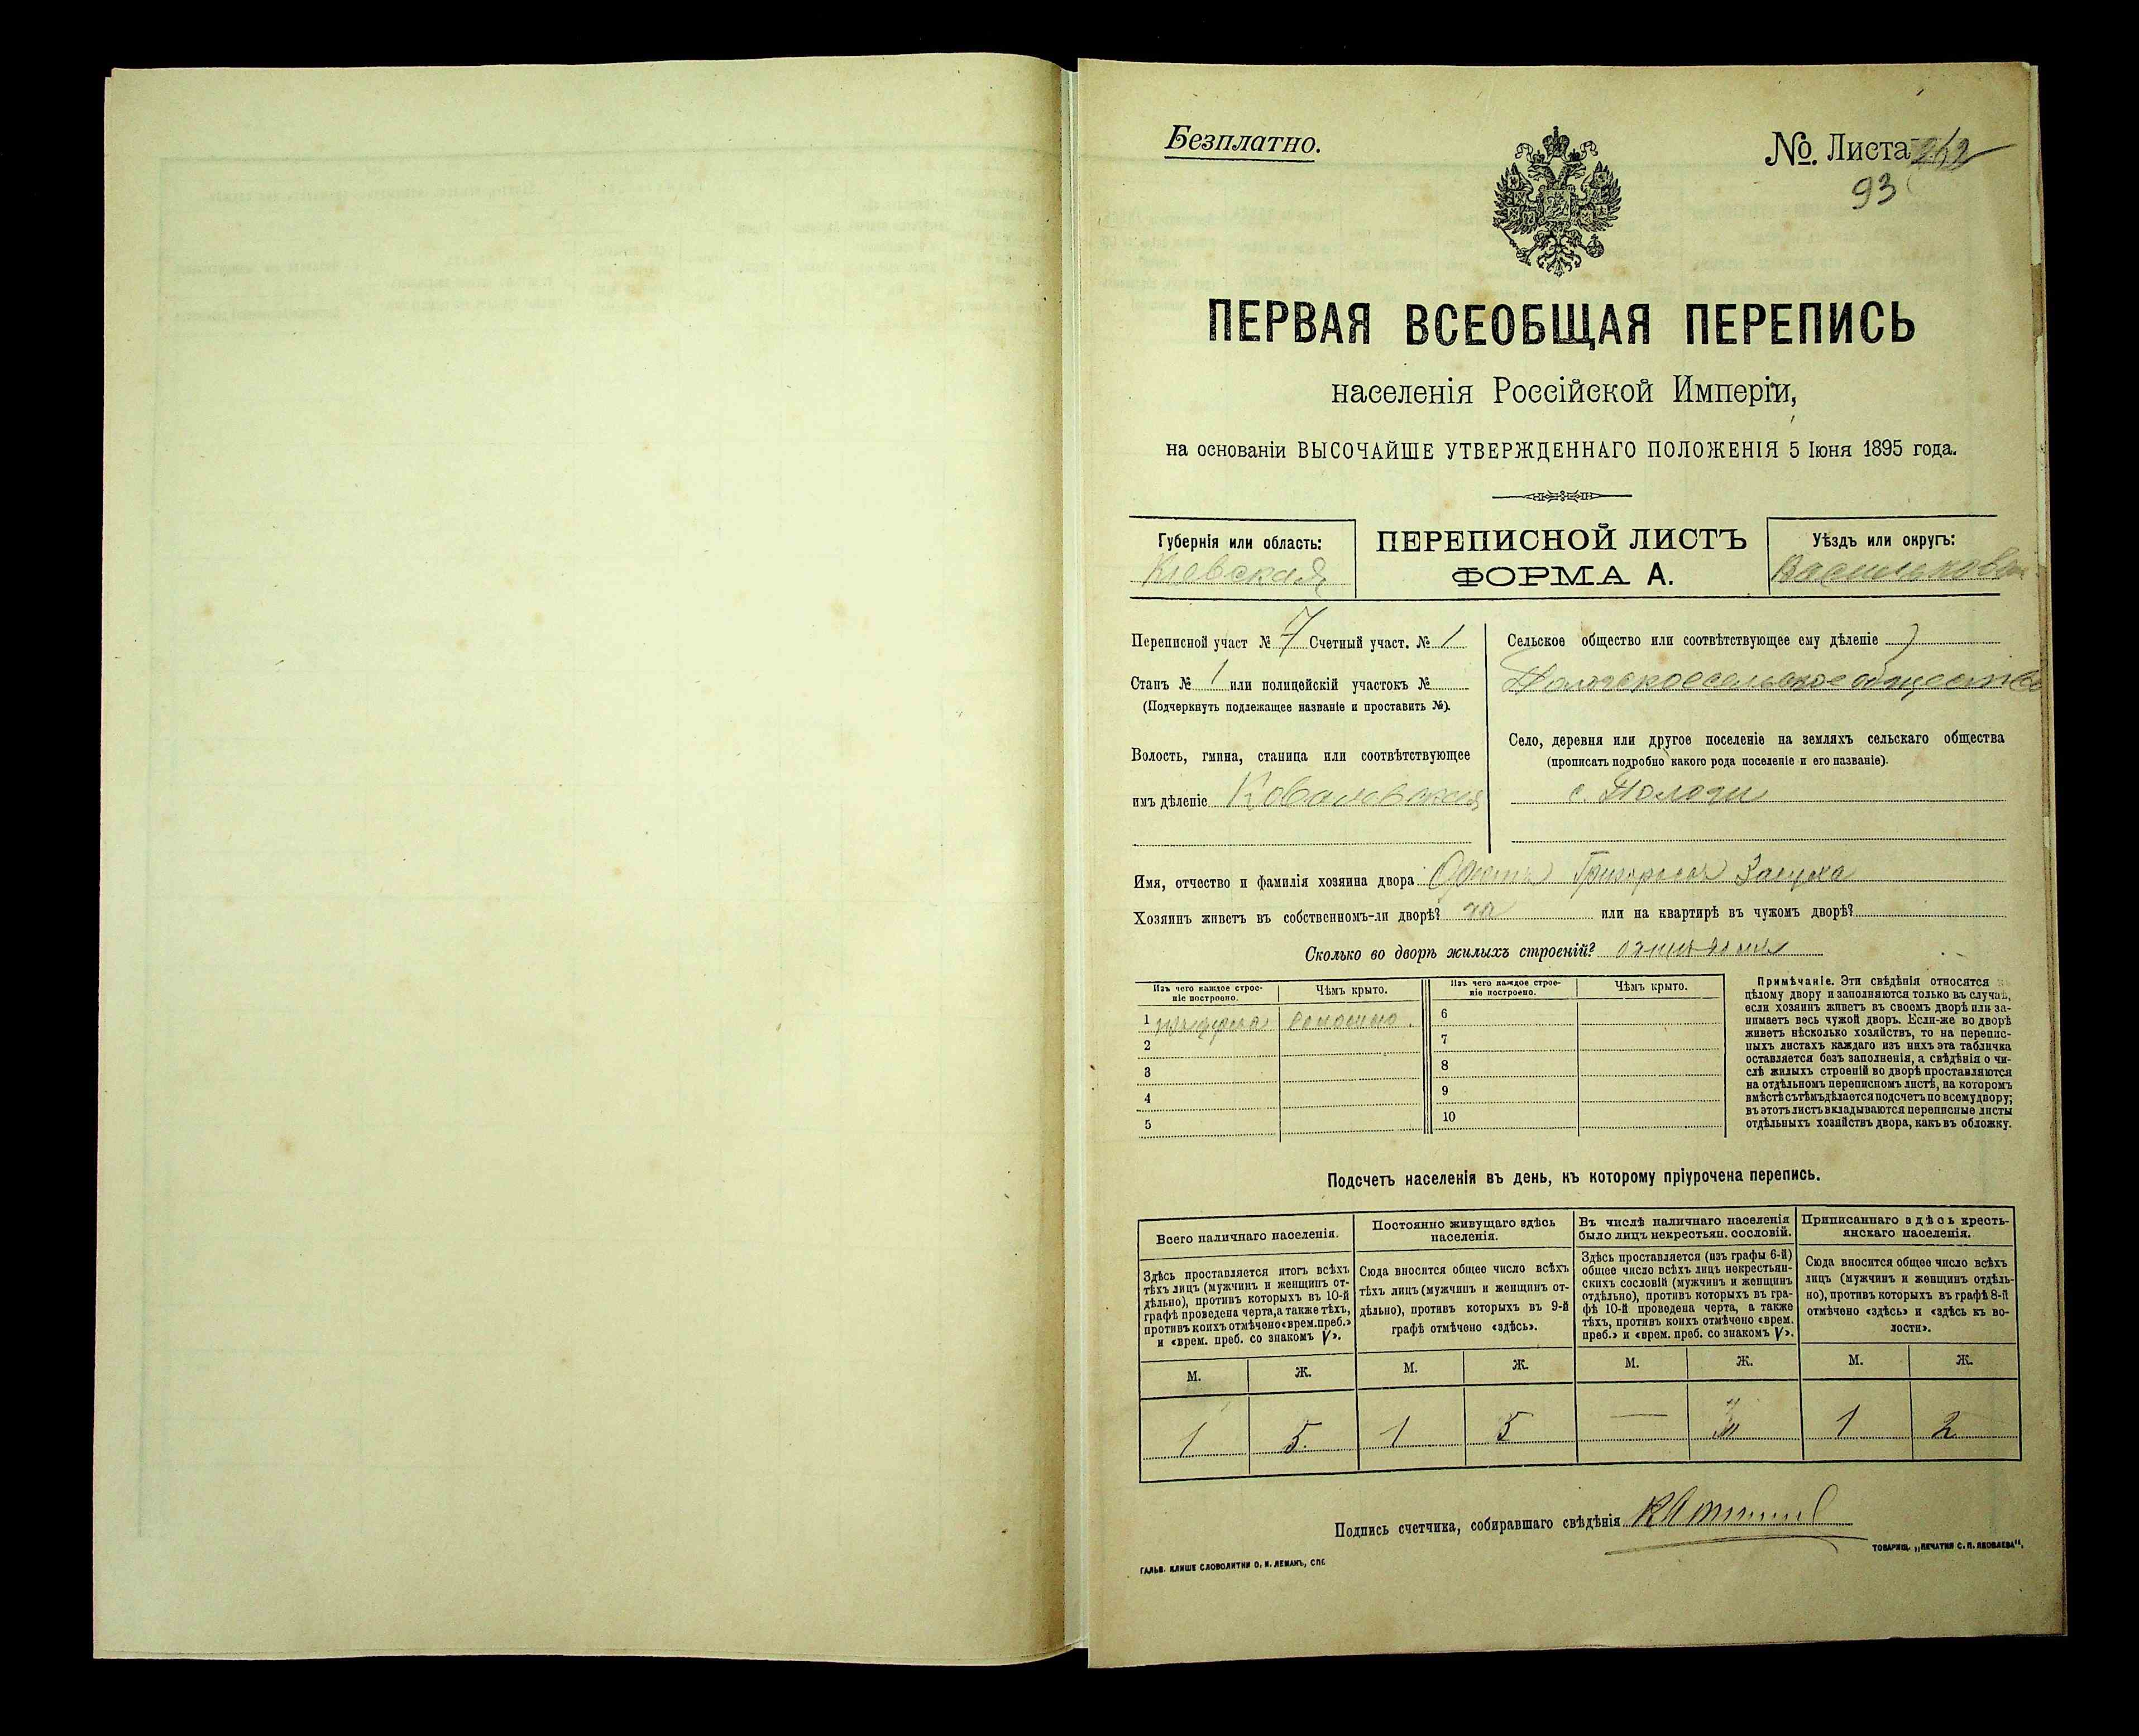 Безплатно.
№ Листа 262
93
ПЕРВАЯ ВСЕОБЩАЯ ПЕРЕПИСЬ
населенія Россійской Имперіи,
на основаніи ВЫСОЧАЙШЕ УТВЕРЖДЕННАГО ПОЛОЖЕНІЯ 5 Іюня 1895 года.
Губернія или область:
Кіевская
ПЕРЕПИСНОЙ ЛИСТЪ
ФОРМА А.
Уѣздъ или округъ:
Васильков
Переписной участ № 7 Счетный участ. № 1
Станъ № 1 или полицейскій участокъ №
(Подчеркнуть подлежащее названіе и проставить №).
Волость, гмина, станица или соотвѣтствующее
имъ дѣленіе Ковалевская
Сельское общество или соотвѣтствующее ему дѣленіе
сельское общество
Село, деревня или другое поселеніе на земляхъ сельскаго общества
(прописать подробно какого рода поселеніе и его названіе).
с. Пологи
Имя, отчество и фамилія хозяина двора Григорьевъ
Хозяинъ живетъ въ собственномъ-ли дворѣ? да или на квартирѣ въ чужомъ дворѣ?
Сколько во дворѣ жилыхъ строеній?
Изъ чего каждое строе-
ніе построено.
Чѣмъ крыто.
Изъ чего каждое строе-
ніе построено.
Чѣмъ крыто.
1 соломою
2
3
4
5
6
7
8
9
10
Примѣчаніе. Эти свѣдѣнія относятся
цѣлому двору и заполняются только въ случаѣ,
если хозяинъ живетъ въ своемъ дворѣ или за-
нимаетъ весь чужой дворъ. Если-же во дворѣ
живетъ нѣсколько хозяйствъ, то на перепис-
ныхъ листахъ каждаго изъ нихъ эта табличка
оставляется безъ заполненія, а свѣдѣнія о чи-
слѣ жилыхъ строеній во дворѣ проставляются
на отдѣльномъ переписномъ листѣ, на которомъ
вмѣстѣ съ тѣмъ дѣлается подсчетъ по всему двору;
въ этотъ листъ вкладываются переписные листы
отдѣльныхъ хозяйствъ двора, какъ въ обложку.
Подсчетъ населенія въ день, къ которому пріурочена перепись.
Всего наличнаго населенія.
Здѣсь проставляется итогъ всѣхъ
тѣхъ лицъ (мужчинъ и женщинъ от-
дѣльно), противъ которыхъ въ 10-й
графѣ проведена черта, а также тѣхъ,
противъ коихъ отмѣчено «врем. преб.»
и «врем. преб. со знакомъ V».
Постоянно живущаго здѣсь
населенія.
Сюда вносится общее число всѣхъ
тѣхъ лицъ (мужчинъ и женщинъ от-
дѣльно), противъ которыхъ въ 9-й
графѣ отмѣчено «здѣсь».
Въ числѣ наличнаго населенія
было лицъ некрестьян. сословій.
Здѣсь проставляется (изъ графы 6-й)
общее число всѣхъ лицъ некрестьян-
скихъ сословій (мужчинъ и женщинъ
отдѣльно), противъ которыхъ въ гра-
фѣ 10-й проведена черта, а также
тѣхъ, противъ коихъ отмѣчено «врем.
преб.» и «врем. преб. со знакомъ V».
Приписаннаго здѣсь кресть-
янскаго населенія.
Сюда вносится общее число всѣхъ
лицъ (мужчинъ и женщинъ отдѣль-
но), противъ которыхъ въ графѣ 8-й
отмѣчено «здѣсь» и «здѣсь къ во-
лости».
М. Ж. М. Ж. М. Ж. М. Ж.
1 5. 1 5 — 3 1 2
Подпись счетчика, собиравшаго свѣдѣнія
ГАЛЬВ. КЛИШЕ СЛОВОЛИТНИ О. И. ЛЕМАНЪ, СПБ.
ТОВАРИЩ. „ПЕЧАТНЯ С. П. ЯКОВЛЕВА“.